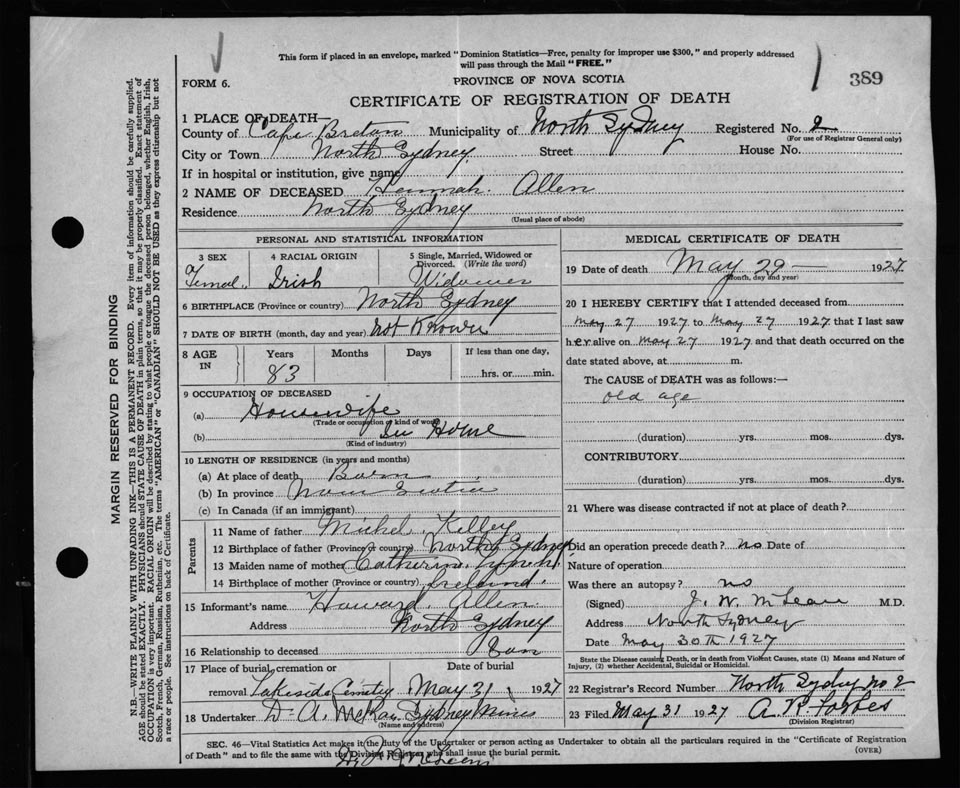 This form if placed in an envelope, marked "Dominion Statistics—Free, penalty for improper use $300," and properly addressed
will pass through the Mail "FREE."
389
FORM 6.
PROVINCE OF NOVA SCOTIA
CERTIFICATE OF REGISTRATION OF DEATH
1 PLACE OF DEATH—
County of Cape Breton Municipality of North Sydney Registered No. 2
(For use of Registrar General only)
City or Town North Sydney Street House No.
If in hospital or institution, give name
2 NAME OF DECEASED Hannah Allen
Residence North Sydney
(Usual place of abode)
PERSONAL AND STATISTICAL INFORMATION
3 SEX 4 RACIAL ORIGIN 5 Single, Married, Widowed or
Divorced. (Write the word)
Femal. Irish Widower
6 BIRTHPLACE (Province or country) North Sydney
7 DATE OF BIRTH (month, day and year) Not Known
8 AGE IN Years Months Days If less than one day,
83 hrs. or min.
9 OCCUPATION OF DECEASED
(a) Housewife
(Trade or occupation or kind of work)
(b) In Home
(Kind of industry)
10 LENGTH OF RESIDENCE (in years and months)
(a) At place of death Born
(b) In province Nova Scotia
(c) In Canada (if an immigrant)
Parents
11 Name of father Michel Kelley
12 Birthplace of father (Province or country) North Sydney
13 Maiden name of mother Catherine
14 Birthplace of mother (Province or country) Ireland.
15 Informant's name Howard Allen
Address North Sydney
16 Relationship to deceased Son
17 Place of burial, cremation or Date of burial
removal Lakeside Cemetry May 31 1927
18 Undertaker D. A. McKay Sydney Mines
(Name and address)
MEDICAL CERTIFICATE OF DEATH
19 Date of death May 29 1927
(Month, day and year)
20 I HEREBY CERTIFY that I attended deceased from
May 27 1927 to May 27 1927 that I last saw
her alive on May 27 1927 and that death occurred on the
date stated above, at m.
The CAUSE of DEATH was as follows:—
old age
(duration) yrs. mos. dys.
CONTRIBUTORY
(duration) yrs. mos. dys.
21 Where was disease contracted if not at place of death?
Did an operation precede death? no Date of
Nature of operation
Was there an autopsy? no
(Signed) J. W. McLean M.D.
Address North Sydney
Date May 30th 1927
State the Disease causing Death, or in death from Violent Causes, state (1) Means and Nature of
Injury, (2) whether Accidental, Suicidal or Homicidal.
22 Registrar's Record Number North Sydney no 2
23 Filed May 31 1927 A. R. Forbes
(Division Registrar)
SEC. 46—Vital Statistics Act makes it the duty of the Undertaker or person acting as Undertaker to obtain all the particulars required in the "Certificate of Registration
of Death" and to file the same with the Division Registrar who shall issue the burial permit.
(OVER)
MARGIN RESERVED FOR BINDING
N.B.—WRITE PLAINLY WITH UNFADING INK—THIS IS A PERMANENT RECORD. Every item of information should be carefully supplied.
AGE should be stated EXACTLY. PHYSICIANS should STATE CAUSE OF DEATH in plain terms, so that it may be properly classified. Exact statement of
OCCUPATION is very important. RACIAL ORIGIN will be described by stating to what people or tongue the deceased person belonged, whether English, Irish,
Scotch, French, German, Russian, Ruthenian, etc. The terms "AMERICAN" or "CANADIAN" SHOULD NOT BE USED as they express citizenship but not
a race or people. See instructions on back of Certificate.